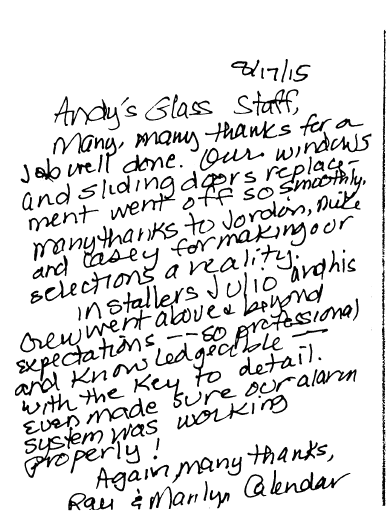 8/17/15
Andy's Glass Staff,
Many, many thanks for a
job well done. Our windows
and sliding doors replace-
ment went off so smoothly.
many thanks to Jordan, Mike
and Casey for making our
selections a reality.
Installers Julio and his
crew went above & beyond
expectations -- so professional
and knowledgeable —
with the key to detail.
Even made sure our alarm
system was working
properly!
Again, many thanks,
Ray & Marilyn Calendar